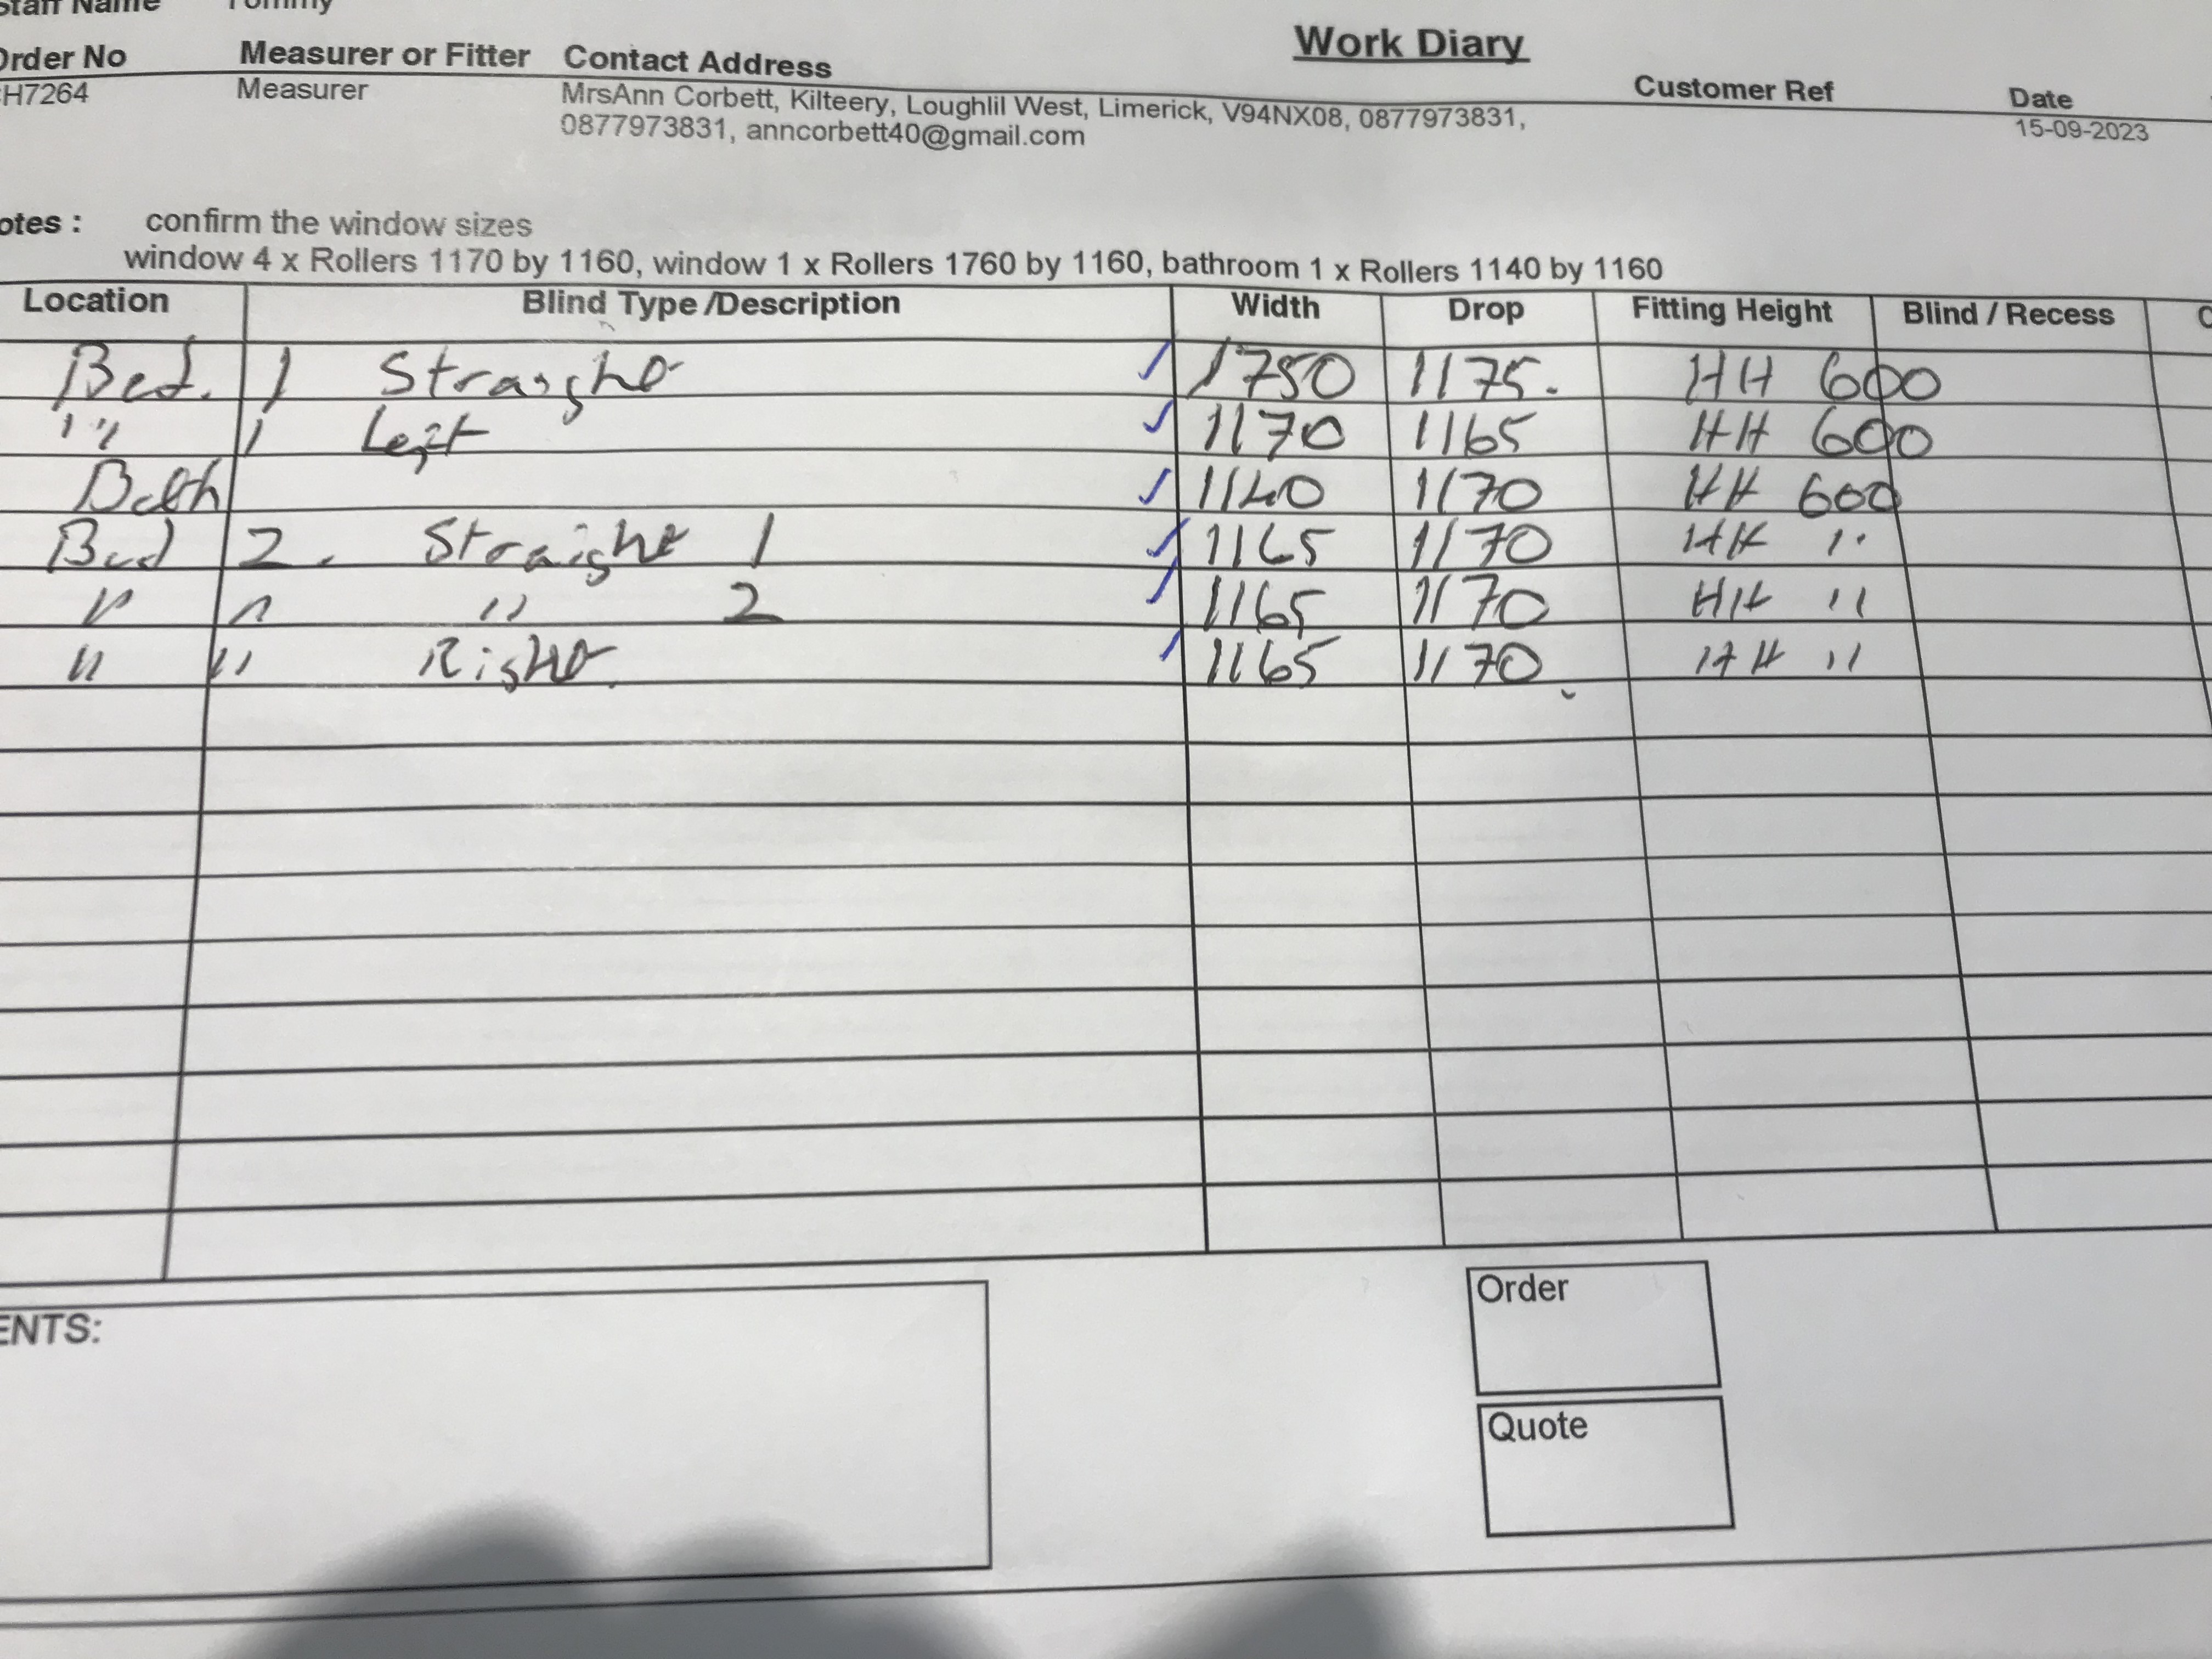 Staff Name Tommy
Work Diary
Order No Measurer or Fitter Contact Address Customer Ref Date
H7264 Measurer MrsAnn Corbett, Kilteery, Loughlil West, Limerick, V94NX08, 0877973831, 15-09-2023
0877973831, anncorbett40@gmail.com
otes : confirm the window sizes
window 4 x Rollers 1170 by 1160, window 1 x Rollers 1760 by 1160, bathroom 1 x Rollers 1140 by 1160
Location Blind Type /Description Width Drop Fitting Height Blind / Recess C
Bed. 1 Straight ✓ 1750 1175. HH 600
" 1 Left ✓ 1170 1165 HH 600
Bath ✓ 1140 1170 HH 600
Bed 2. Straight 1 ✓ 1165 1170 HH "
" " " 2 ✓ 1165 1170 HH "
" " Right ✓ 1165 1170 HH "
Order
ENTS:
Quote